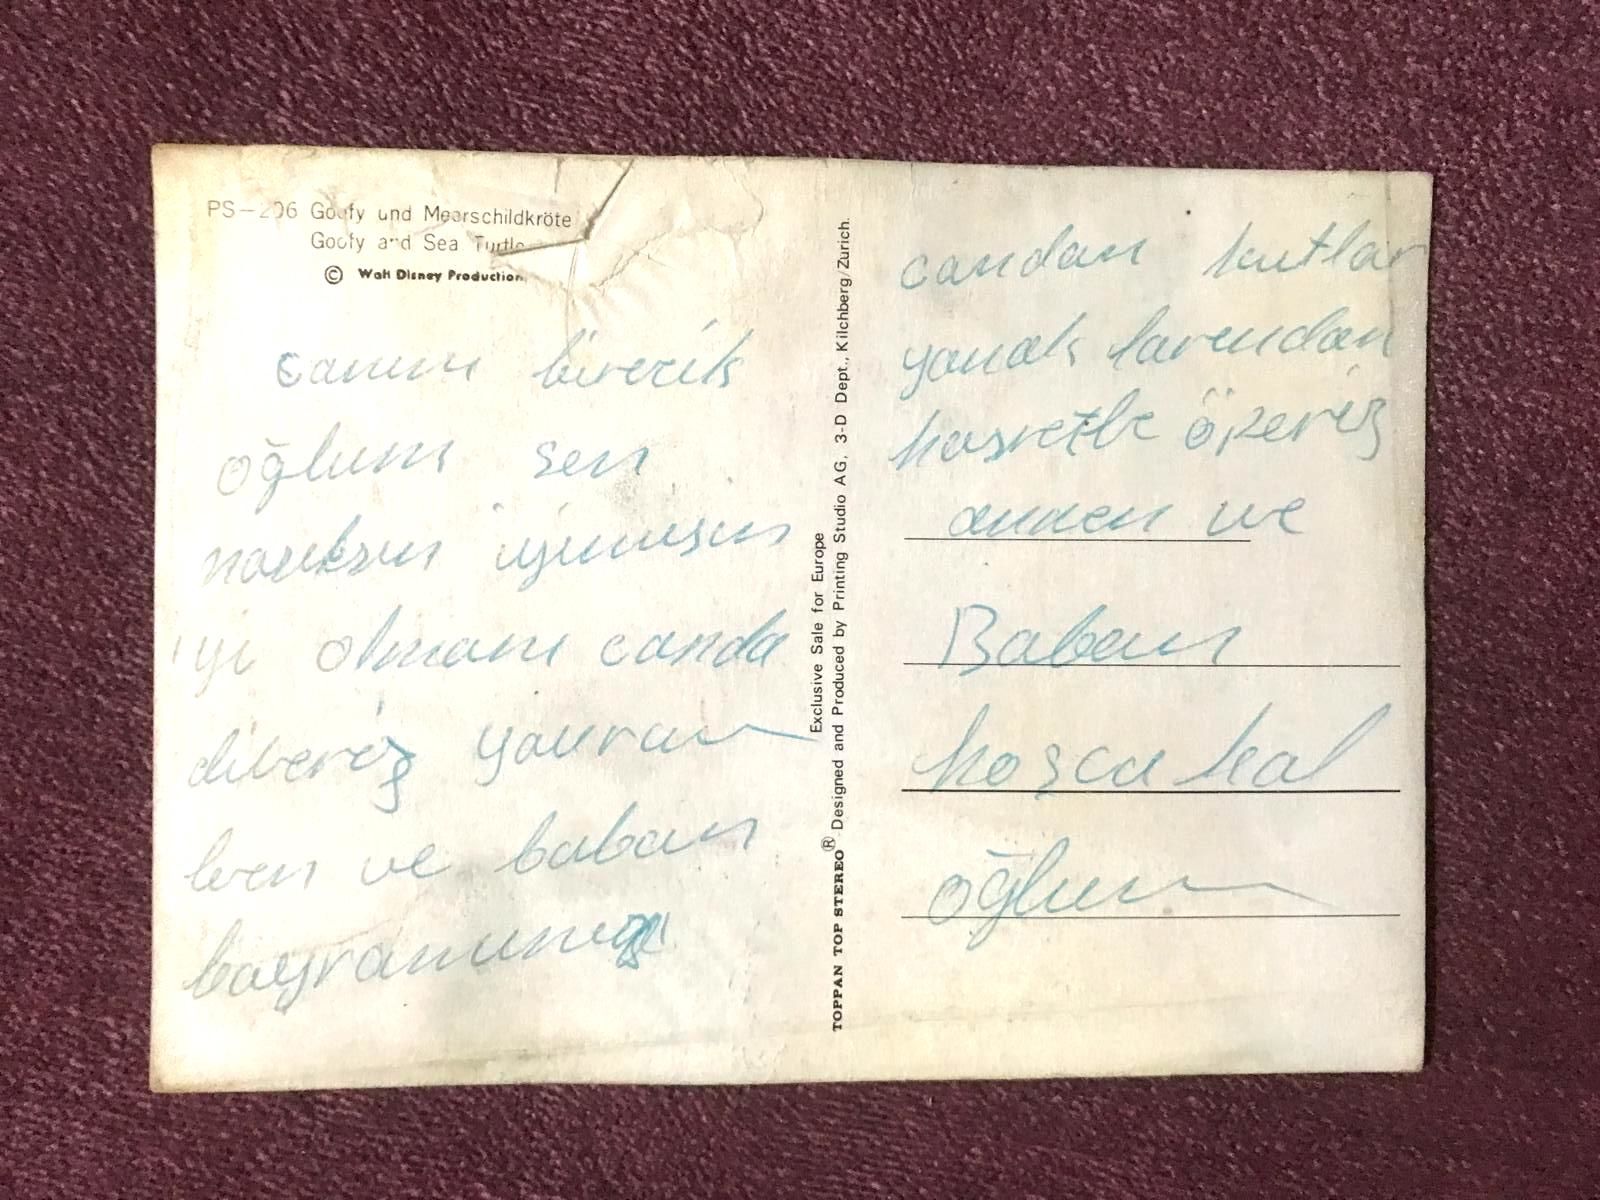 PS-206 Goofy und Meerschildkröte
Goofy and Sea Turtle
© Walt Disney Production
canım biricik
oğlum sen
nasılsın iyimisin
iyi olmanı canda
dileriz yavrum
ben ve baban
bayramınızı
Exclusive Sale for Europe
TOPPAN TOP STEREO® Designed and Produced by Printing Studio AG, 3-D Dept., Kilchberg/Zurich.
candan kutlar
yanak larından
hasretle öperiz
annen ve
Baban
hoşca kal
oğlum